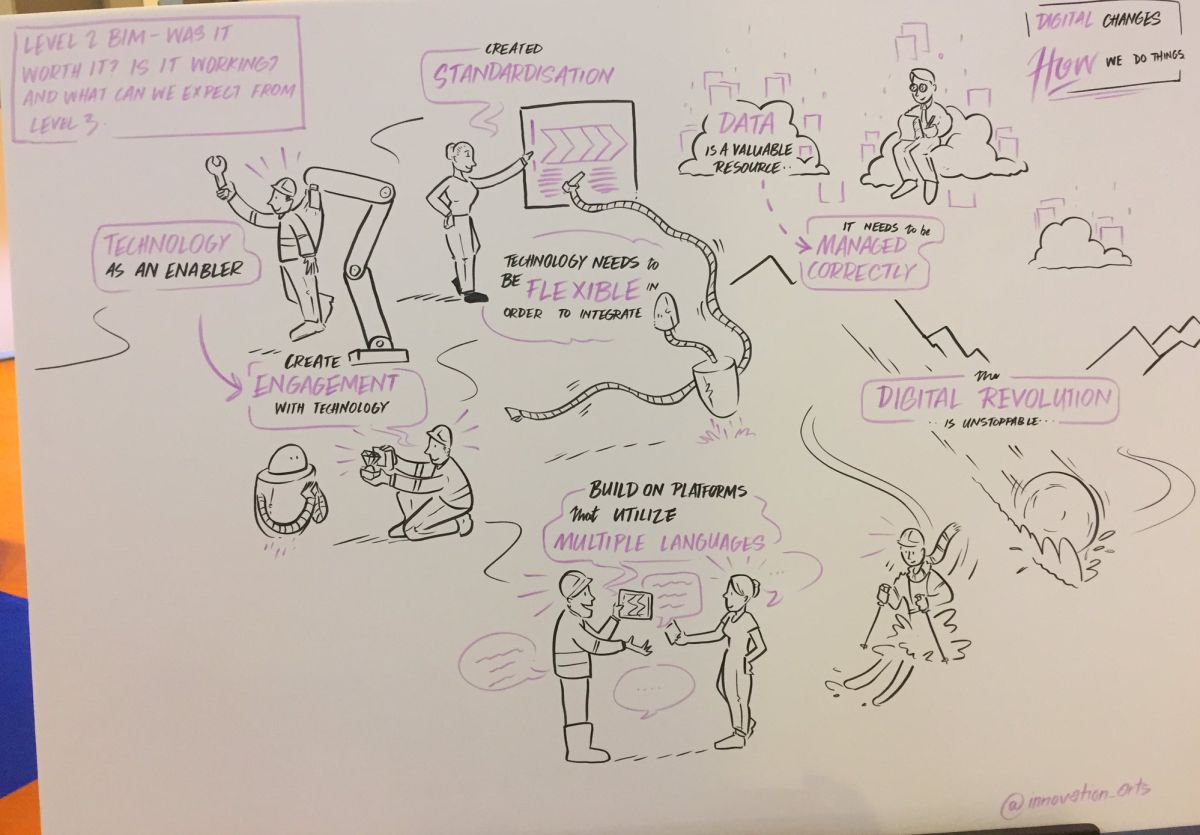 LEVEL 2 BIM - WAS IT
WORTH IT? IS IT WORKING?
AND WHAT CAN WE EXPECT FROM
LEVEL 3.
CREATED
STANDARDISATION
DATA
IS A VALUABLE
RESOURCE..
DIGITAL CHANGES
HOW WE DO THINGS
IT NEEDS to be
MANAGED
CORRECTLY
TECHNOLOGY
AS AN ENABLER
TECHNOLOGY NEEDS to
BE FLEXIBLE IN
ORDER TO INTEGRATE
CREATE
ENGAGEMENT
WITH TECHNOLOGY
the
DIGITAL REVOLUTION
..IS UNSTOPPABLE...
BUILD ON PLATFORMS
that UTILIZE
MULTIPLE LANGUAGES
@innovation_arts